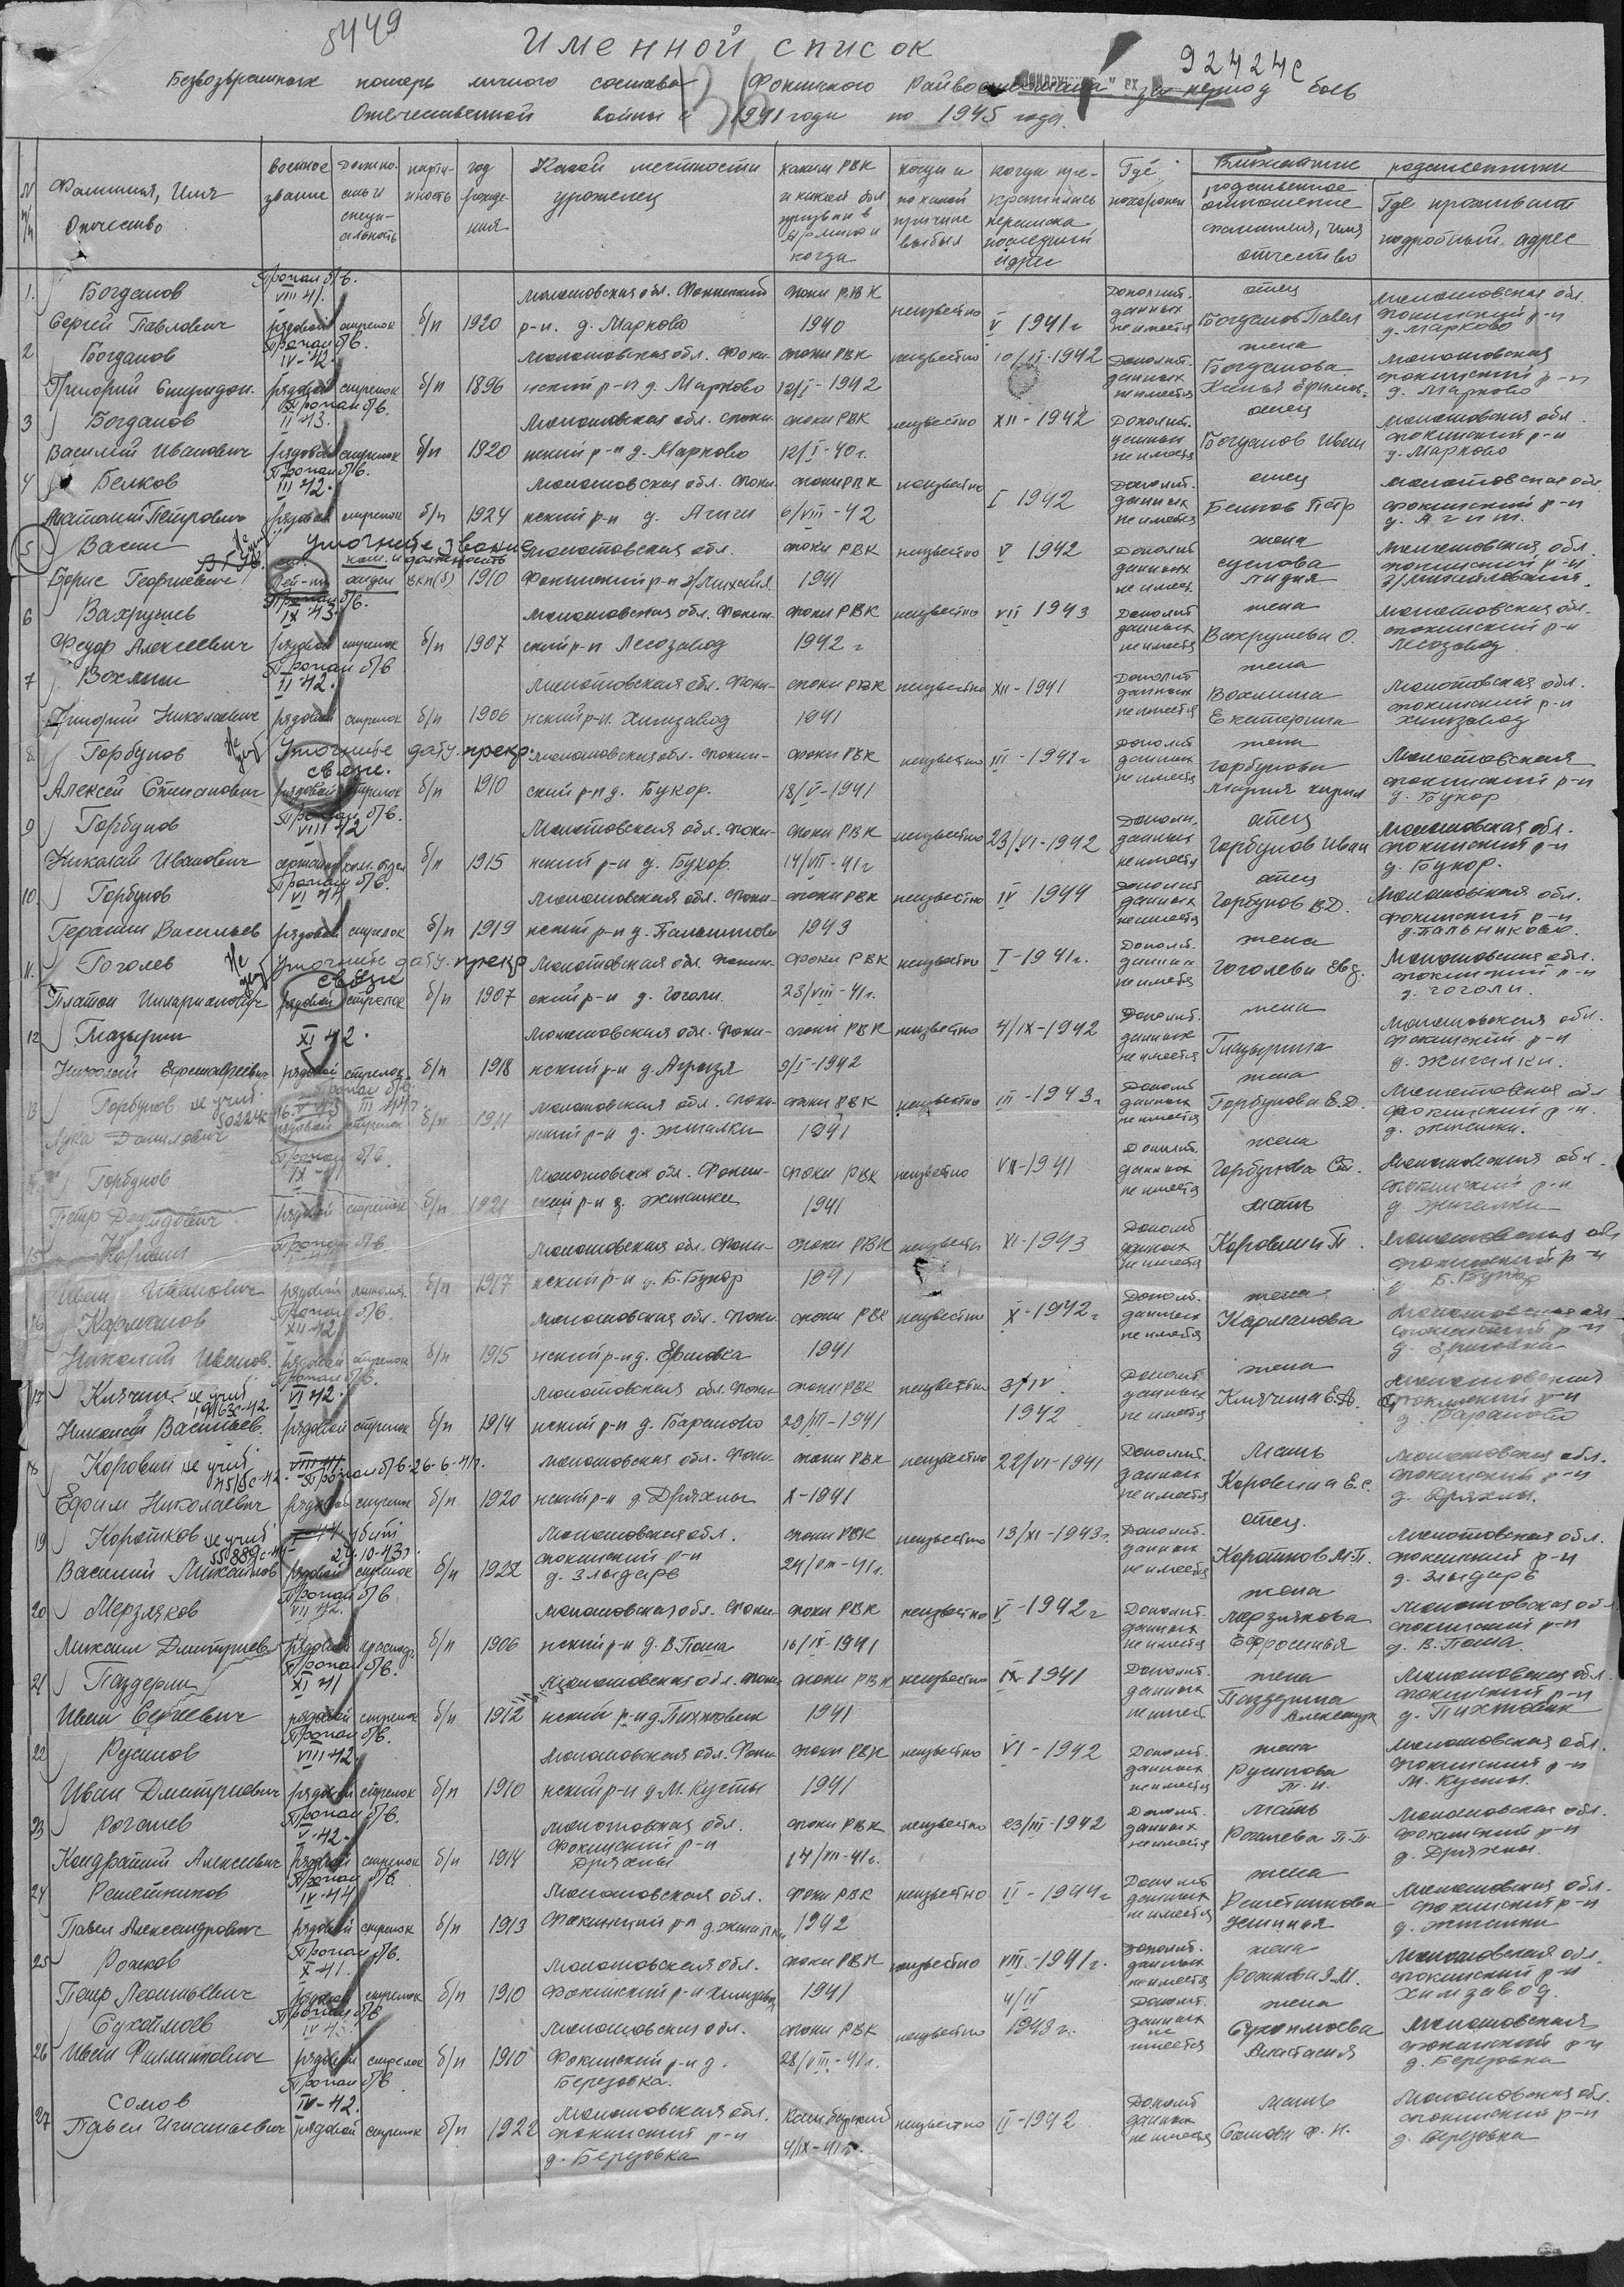 5449
Именной список
92424с
Безвозвратных потерь личного состава Фокинского Райвоенкомата за период боев
Отечественной войны с 1941 года по 1945 года.
N п/п
Фамилия, Имя Отчество
военное звание
должность и специальность
партийность
год рождения
Какой местности уроженец
каким РВК и какой обл призван в армию и когда
когда и по какой причине выбыл
когда прекратилась переписка последний адрес
Где похоронен
Ближайшие родственники
родственное отношение фамилия, имя отчество
Где проживают подробный адрес
1. Богданов Пропал б/в. VIII 41. Молотовская обл. Фокинский Фоки РВК неизвестно Дополнит. данных не имеется отец Молотовская обл.
Сергей Павлович рядовой стрелок б/п 1920 р-н. д. Марково 1940 V 1941 г Богданов Павел фокинский р-н д. Марково
2 Богданов Пропал б/в. IV-42. Молотовская обл. Фоки- Фоки РВК неизвестно 10/II-1942 Дополнит. данных не имеется жена Богданова Молотовская
Григорий Спиридон. рядовой стрелок б/п 1896 нский р-н д. Марково 12/I-1942 фокинский р-н д. Марково
3 Богданов Пропал б/в. II 43. Молотовская обл. Фоки- Фоки РВК неизвестно XII-1942 Дополнит. данных не имеется отец Молотовская обл
Василий Иванович рядовой стрелок б/п 1920 нский р-н д. Марково 12/I-40 г. Богданов Иван фокинский р-н д. Марково
4 Белков Пропал б/в. III 42. Молотовская обл. Фоки- Фоки РВК неизвестно I 1942 Дополнит. данных не имеется отец Молотовская обл
Анатолий Петрович рядовой стрелок б/п 1924 нский р-н д. 6/VIII-42 Белков Петр фокинский р-н
5 Васин Уточните звание и должность Молотовская обл. Фоки РВК неизвестно V 1942 Дополнит данных не имеет. жена Молотовская обл.
Борис Георгиевич Лей-нт ВКП(б) 1910 Фокинский р-н 1941 Лидия фокинский р-н
6 Вахрушев Пропал б/в. IX 43. Молотовская обл. Фокин- Фоки РВК неизвестно VII 1943 Дополнит данных не имеется жена Молотовская обл.
Федор Алексеевич рядовой стрелок б/п 1907 ский р-н Лесозавод 1942 г Вахрушева О. фокинский р-н Лесозавод
7 Вохмин Пропал б/в II 42. Молотовская обл. Фоки- Фоки РВК неизвестно XII-1941 Дополнит данных не имеется жена Вохмина Молотовская обл.
Григорий Николаевич рядовой стрелок б/п 1906 нский р-н. Химзавод 1941 Екатерина фокинский р-н Химзавод
8. Горбунов Уточните дату. прекр. связи. Молотовская обл. Фокин- Фоки РВК неизвестно III-1941 г Дополнит данных не имеется жена Горбунова Молотовская
Алексей Степанович рядовой стрелок б/п 1910 ский р-н д. Букор. 18/V-1941 Мария фокинский р-н д. Букор
9 Горбунов Пропал б/в. VIII 42 Молотовская обл. Фоки- Фоки РВК неизвестно 23/VI-1942 Дополн. данных не имеется отец Молотовская обл.
Николай Иванович сержант ком. отдел б/п 1915 нский р-н д. Букор. 14/VII-41 г Горбунов Иван фокинский р-н д. Букор.
10. Горбунов Пропал б/в. VI 44 Молотовская обл. Фоки- Фоки РВК неизвестно IV 1944 Дополнит данных не имеется отец Молотовская обл.
Герасим Васильев рядовой стрелок б/п 1919 нский р-н д. Пальниково 1943 Горбунов В.Д. фокинский р-н д. Пальниково.
11. Гоголев Уточните дату. прекр связи Молотовская обл. Фокин- Фоки РВК неизвестно I-1941 г. Дополнит. данных не имеется жена Молотовская обл.
Платон Илларионович рядовой стрелок б/п 1907 ский р-н д. Гоголи. 23/VIII-41 г. Гоголева Евд. фокинский р-н д. Гоголи.
12 Глазырин XI 42. Молотовская обл. Фоки- Фоки РВК неизвестно 4/IX-1942 Дополнит. данных не имеется жена Молотовская обл.
Николай рядовой стрелок б/п 1918 нский р-н д. 9/I-1942 Глазырина фокинский р-н д. Жигалки.
13 Горбунов не учит. 50224с Пропал б/в. Молотовская обл. Фоки- Фоки РВК неизвестно III-1943 г Дополнит данных не имеется жена Молотовская обл
Лука Данилович рядовой стрелок б/п 1911 нский р-н д. Жигалки 1941 Горбунова Е.Д. фокинский р-н. д. Жигалки.
14 Горбунов Пропал б/в. IX-41 Молотовская обл. Фокин- Фоки РВК неизвестно VII-1941 Дополнит. данных не имеется жена Молотовская обл.
Петр рядовой стрелок б/п 1921 ский р-н д. Жигалки 1941 Горбунова Ст. фокинский р-н д. Жигалки
15 Пропал б/в Молотовская обл. Фоки- Фоки РВК неизвестн XI-1943 Дополнит данных не имеется мать Молотовская обл
Иван Иванович рядовой б/п 1917 нский р-н д. Б. Букор 1941 фокинский р-н д. Б. Букор
16 Карманов Пропал б/в. XII-42. Молотовская обл. Фоки- Фоки РВК неизвестно X-1942 г Дополнит. данных не имеется жена Молотовская обл
Николай Иванов. рядовой стрелок б/п 1915 нский р-н д. Ершовка 1941 Карманова фокинский р-н д. Ершовка
17 Клячин не учит. Пропал б/в. VI 42. Молотовская обл. Фоки- Фоки РВК неизвестно 3/IV 1942 Дополнит данных не имеется жена Молотовская
Николай Васильев. рядовой стрелок б/п 1914 нский р-н д. Бараново 29/VII-1941 Клячина Е.А. фокинский р-н д. Бараново
18 Коровин не учит. Пропал б/в. 26-6-41 г. Молотовская обл. Фоки- Фоки РВК неизвестно 22/VI-1941 Дополнит. данных не имеется мать Молотовская обл.
Ефим Николаевич рядовой стрелок б/п 1920 нский р-н д. Дряхлы X-1941 Коровина Е.С. фокинский р-н д. Дряхлы.
19 Коротков не учит. убит 24.10.43 г. Молотовская обл. Фоки РВК неизвестно 13/XI-1943 г. Дополнит. данных не имеется отец. Молотовская обл.
Василий Михайлов рядовой стрелок б/п 1922 фокинский р-н д. Злыдарь 24/VIII-41 г. Коротков М.П. фокинский р-н д. Злыдарь
20 Мерзляков Пропал б/в VII 42. Молотовская обл. Фоки- Фоки РВК неизвестно V-1942 г Дополнит. данных не имеется жена Мерзлякова Молотовская обл
Михаил Дмитриев рядовой б/п 1906 нский р-н д. В. Поша 16/IX-1941 Ефросинья фокинский р-н д. В. Поша.
21 Паздерин Пропал б/в. XI 41 Молотовская обл. Фоки- Фоки РВК неизвестно IX-1941 Дополнит. данных не имеет. жена Молотовская обл.
Иван Сергеевич рядовой стрелок б/п 1912 нский р-н д. Пихтовик 1941 Паздерина Александра фокинский р-н д. Пихтовик
22 Русинов Пропал б/в. VIII 42. Молотовская обл. Фоки- Фоки РВК неизвестно VI-1942 Дополнит. данных не имеется жена Русинова Молотовская обл.
Иван Дмитриевич рядовой стрелок б/п 1910 нский р-н д. М. Кусты 1941 фокинский р-н М. Кусты.
23 Рогалев Пропал б/в. V-42. Молотовская обл. Фоки РВК неизвестно 23/III-1942 Дополнит. данных не имеется мать Молотовская обл.
Кондратий Алексеевич рядовой стрелок б/п 1914 Фокинский р-н Дряхлы 14/VII-41 г. Рогалева П.П. фокинский р-н д. Дряхлы.
24 Решетников Пропал б/в. IV-44 Молотовская обл. Фоки РВК неизвестно II-1944 г Дополнит данных не имеется жена Решетникова Молотовская обл.
Павел Александрович рядовой стрелок б/п 1913 Фокинский р-н д. Жигалки 1942 Устинья фокинский р-н д. Жигалки
25 Рожков Пропал б/в. X-41. Молотовская обл. Фоки РВК неизвестно VIII-1941 г. Дополнит. данных не имеется жена Молотовская обл.
Петр Леонтьевич рядовой стрелок б/п 1910 Фокинский р-н Химзавод 1941 Рожкова фокинский р-н Химзавод.
26 Сухоплюев Пропал б/в IV 43. Молотовская обл. Фоки РВК неизвестно 4/II 1943 г. Дополнит. данных не имеется жена Сухоплюева Молотовская
Иван Филиппович рядовой стрелок б/п 1910 Фокинский р-н д. Березовка. 28/VIII-41 г. Анастасия фокинский р-н д. Березовка
27 Сомов Пропал б/в IV-42. Молотовская обл. неизвестно II-1942 Дополнит данных не имеется мать Молотовская обл.
Павел Игнатьевич рядовой стрелок б/п 1922 фокинский р-н д. Березовка 4/IX-41 г. Сомова Ф.Н. фокинский р-н д. Березовка